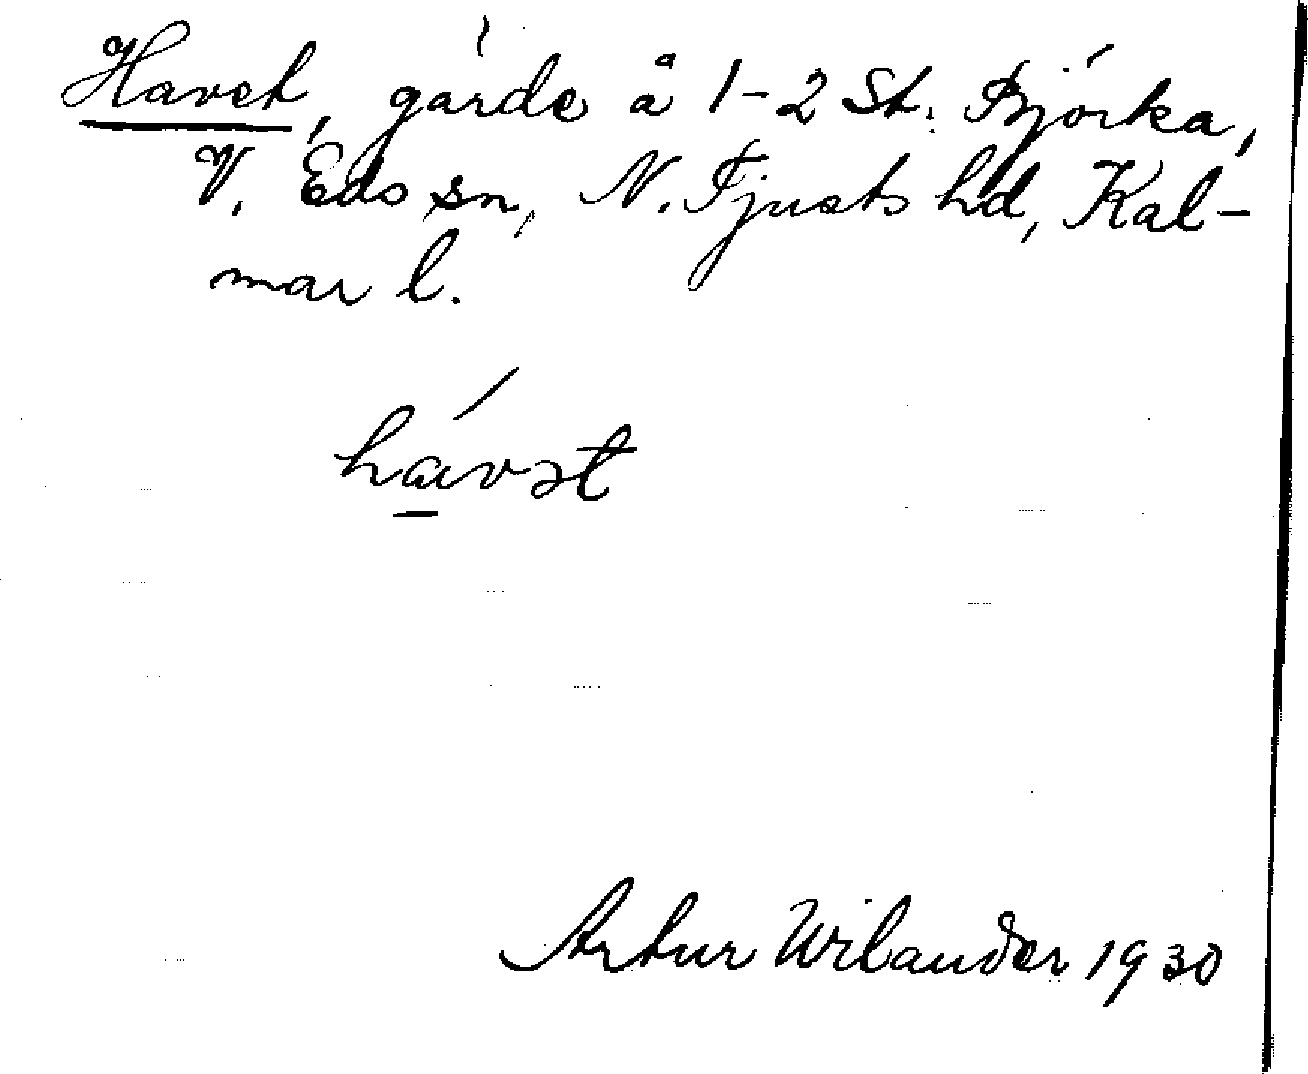 Havet, gärde å 1-2 St. Björka,
V. Eds sn, N. Tjusts hd, Kal-
mar l.
hávət
Artur Wilander 1930